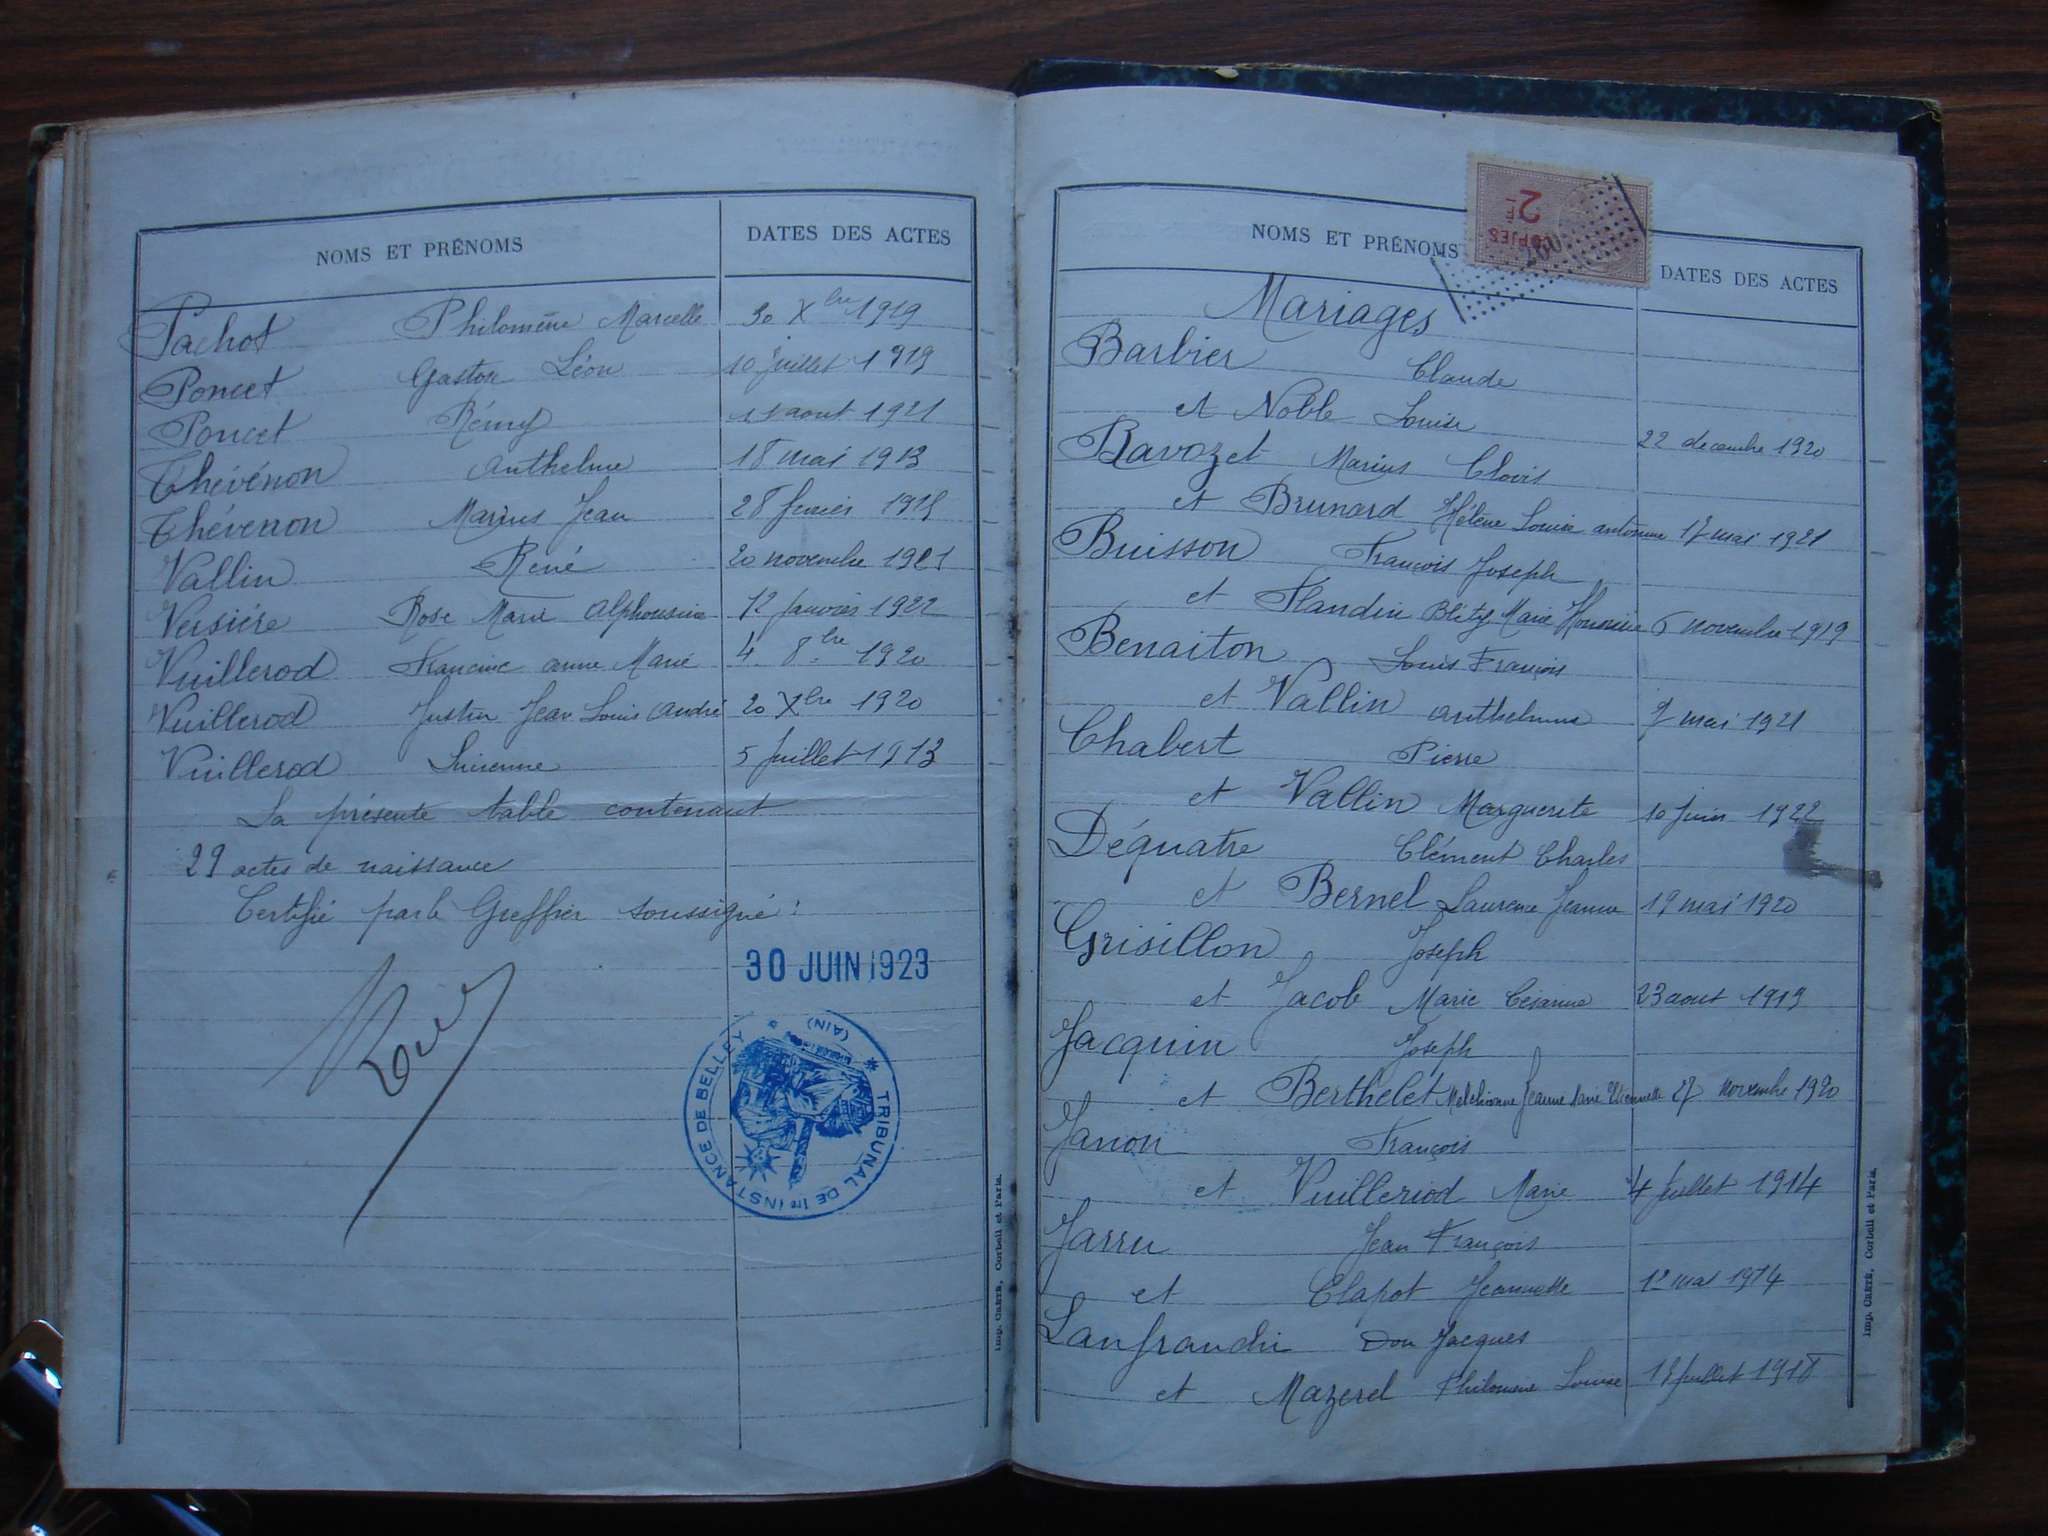 NOMS ET PRÉNOMS DATES DES ACTES
Pachot Philomène Marcelle 30 Xbre 1919
Poncet Gaston Léon 10 Juillet 1919
Poncet Rémy 11 aout 1921
Thévénon Anthelme 18 mai 1913
Thévenon Marius Jean 28 fevrier
Vallin René 20 novembre 1921
Versière Rose Marie Alphonsine 12 Janvier 1922
Vuillerod Francine anne Marie 4 8bre 1920
Vuillerod Justin Jean Louis André 20 Xbre 1920
Vuillerod 5 Juillet 1913
La présente table contenant
29 actes de naissance
Certifié par le Greffier soussigné :
30 JUIN 1923
TRIBUNAL DE 1re INSTANCE DE BELLEY
(AIN)
Imp. CRÉTÉ, Corbeil et Paris.
COPIES
2
NOMS ET PRÉNOMS DATES DES ACTES
Mariages
Barbier Claude
et Noble Louise 22 decembre 1920
Ravozet Marius Clovis
et Brunard Hélène Louise mai 1921
Buisson François Joseph
et Flandin Marie Honorine 6 novembre 1919
Benaiton Louis François
et Vallin anthelmine 7 mai 1921
Chabert Pierre
et Vallin Marguerite 10 Juin 1922
Déquatre Clément Charles
et Bernel Laurence Jeanne 19 mai 1920
Grisillon Joseph
et Jacob Marie Césarine 23 aout 1919
Jacquin Joseph
et Berthelet Melchionne Jeanne Marie 27 novembre 1920
Janon François
et Vuilleriod Marie 4 Juillet 1914
Jarru Jean François
et Clapot Jeannette 12 mai 1914
Lanfranchi Don Jacques
et Mazerel Philomène Louise Juillet 1918
Imp. CRÉTÉ, Corbeil et Paris.